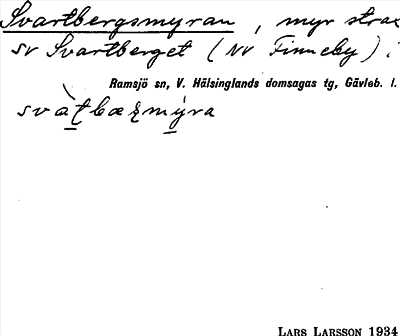 Svartbergsmyran, myr strax
sv Svartberget (NV Finneby).
Ramsjö sn, V. Hälsinglands domsagas tg, Gävleb. l.
svàṭbæꝛmýra
LARS LARSSON 1934